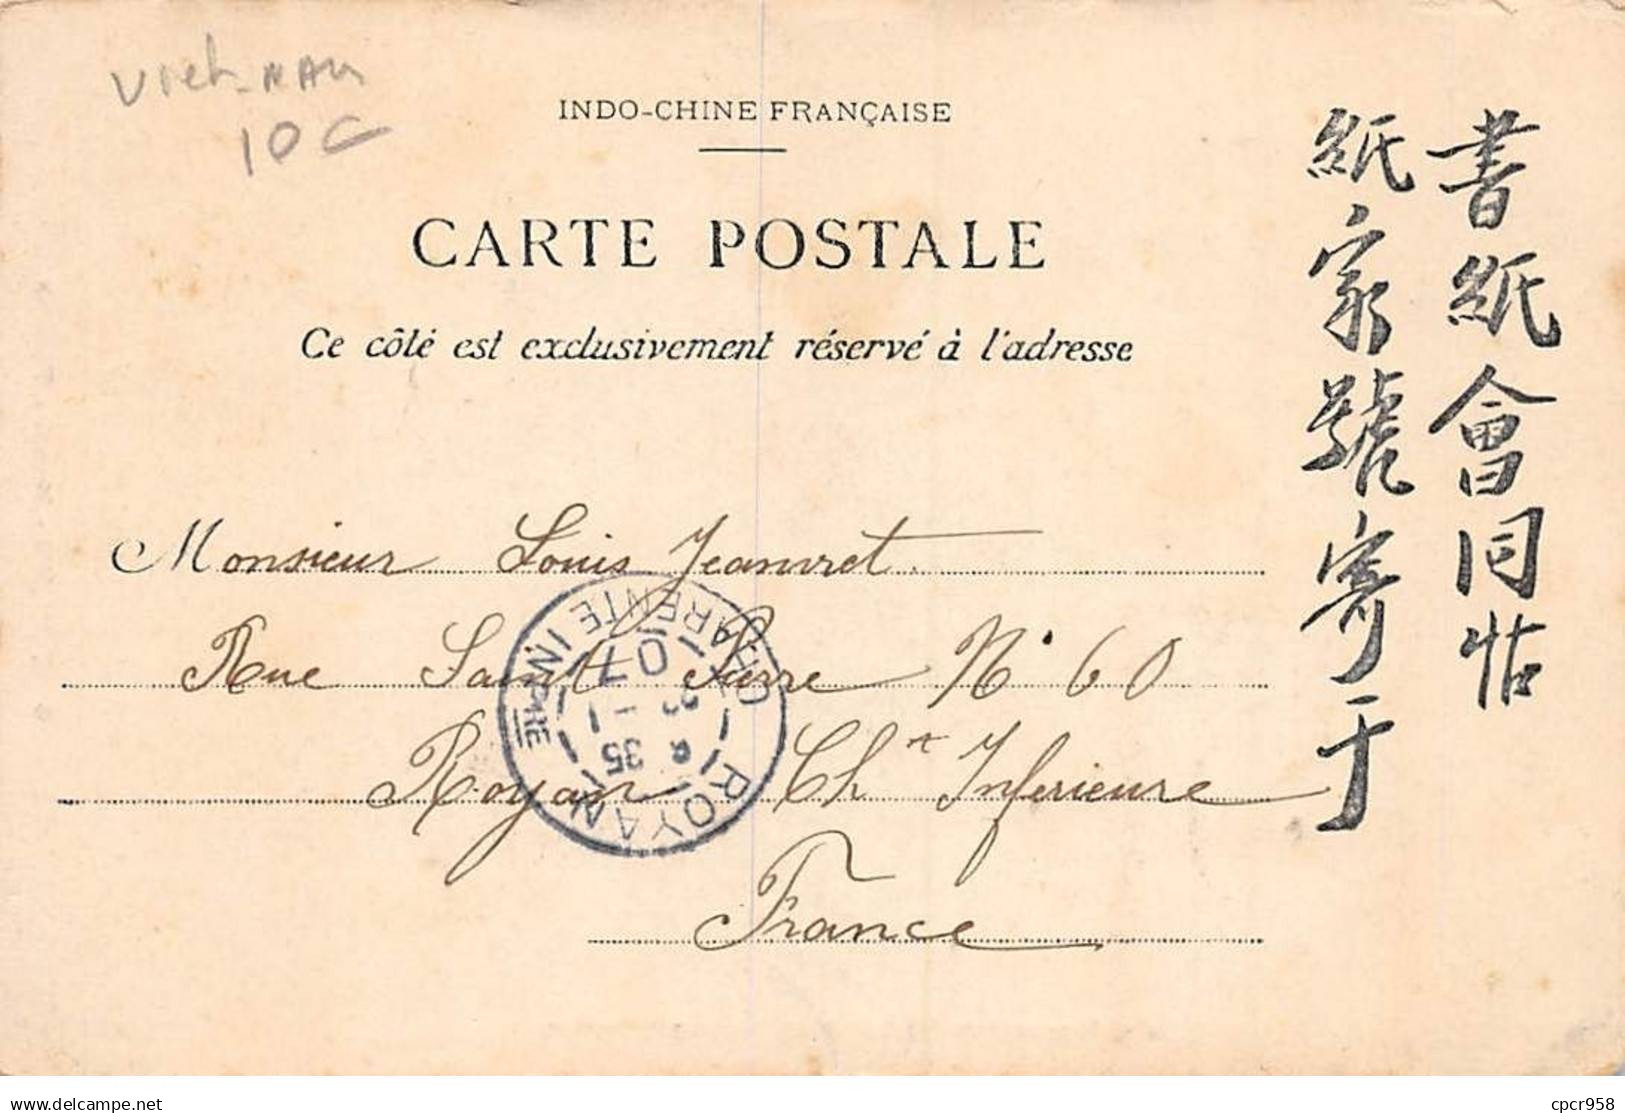 Viet-nam
10 C
INDO-CHINE FRANÇAISE
CARTE POSTALE
Ce côté est exclusivement réservé à l'adresse
書紙會同帖
紙家號寄于
Monsieur Louis Jeanvret
Rue Saint Pierre N° 60
Royan Chte Inferieure
France
ROYAN
CHARENTE INFRE
07
35
delcampe.net
cpcr958